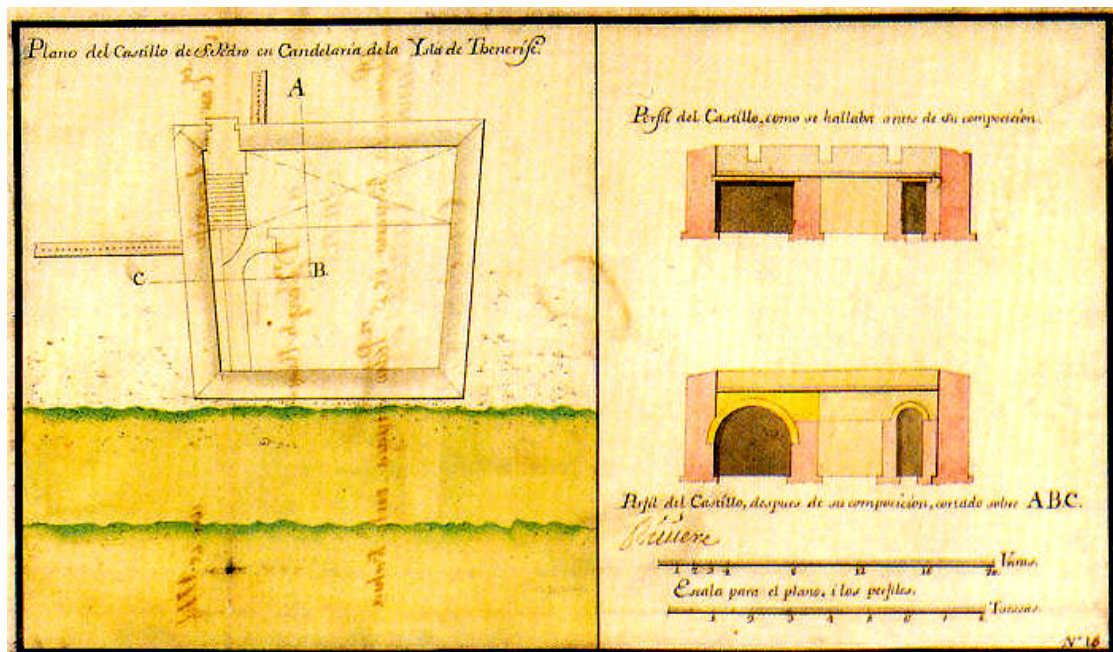 Plano del Castillo de S. Pedro en Candelaria de la Ysla de Thenerife.
A
C
B.
Perfil del Castillo, como se hallaba antes de su composicion.
Perfil del Castillo, despues de su composicion, cortado sobre A B C.
Riviere
Varas.
1 2 3 4 8 12 16 20
Escala para el plano, i los perfiles.
Tuessas.
1 2 3 4 5 6 7 8
Nº 16